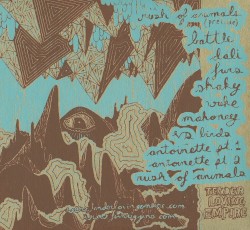 rush of animals
battle
lali
fura
shaky
wake
mahoney
vs birds
antoinette pt. 1
antoinette pt. 2
rush of animals
TENDER
LOVING
EMPIRE
www.tenderlovingempire.com